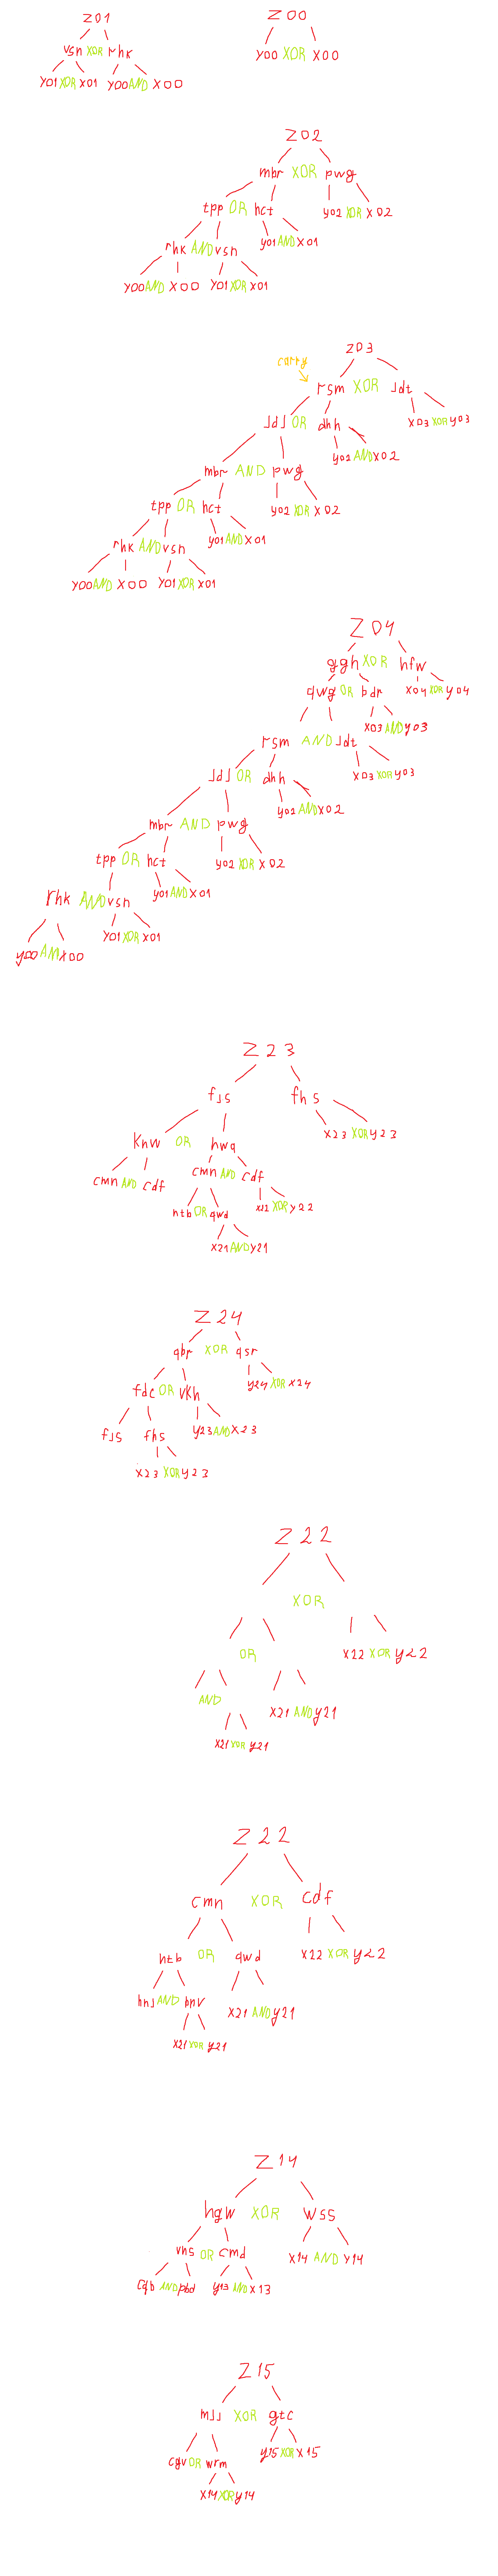 Z01
vsn XOR rhk
Y01 XOR X01 Y00 AND X00
Z00
Y00 XOR X00
Z02
mbr XOR pwg
tpp OR hct
y02 XOR X02
rhk AND vsn
y01 AND X01
Y00 AND X00 Y01 XOR X01
Z03
carry
rsm XOR JdT
JdJ OR dhh
X03 XOR y03
y02 AND X02
mbr AND pwg
tpp OR hct
y02 XOR X02
rhk AND vsn
y01 AND X01
Y00 AND X00 Y01 XOR X01
Z04
ggh XOR hfw
qwg OR bdr
X04 XOR y04
X03 AND y03
rsm AND Jdt
X03 XOR y03
JdJ OR dhh
y02 AND X02
mbr AND pwg
tpp OR hct
y02 XOR X02
rhk AND vsn
y01 AND X01
Y01 XOR X01
y00 AND X00
Z23
fJs fhs
X23 XOR y23
Knw OR hwq
cmn AND cdf
cmn AND cdf
htb OR qwd
X22 XOR y22
X21 AND y21
Z24
qbr XOR qsr
fdc OR VKh
y24 XOR X24
fJs fhs
y23 AND X23
X23 XOR y23
Z22
XOR
OR
X22 XOR y22
AND
X21 AND y21
X21 XOR y21
Z22
cmn XOR cdf
htb OR qwd
X22 XOR y22
hnJ AND hnV
X21 AND y21
X21 XOR y21
Z14
hgw XOR wss
vhs OR cmd
X14 AND Y14
cqb AND pbd y13 AND X13
Z15
mJJ XOR gtc
cgv OR wrm
y15 XOR X15
X14 XOR y14